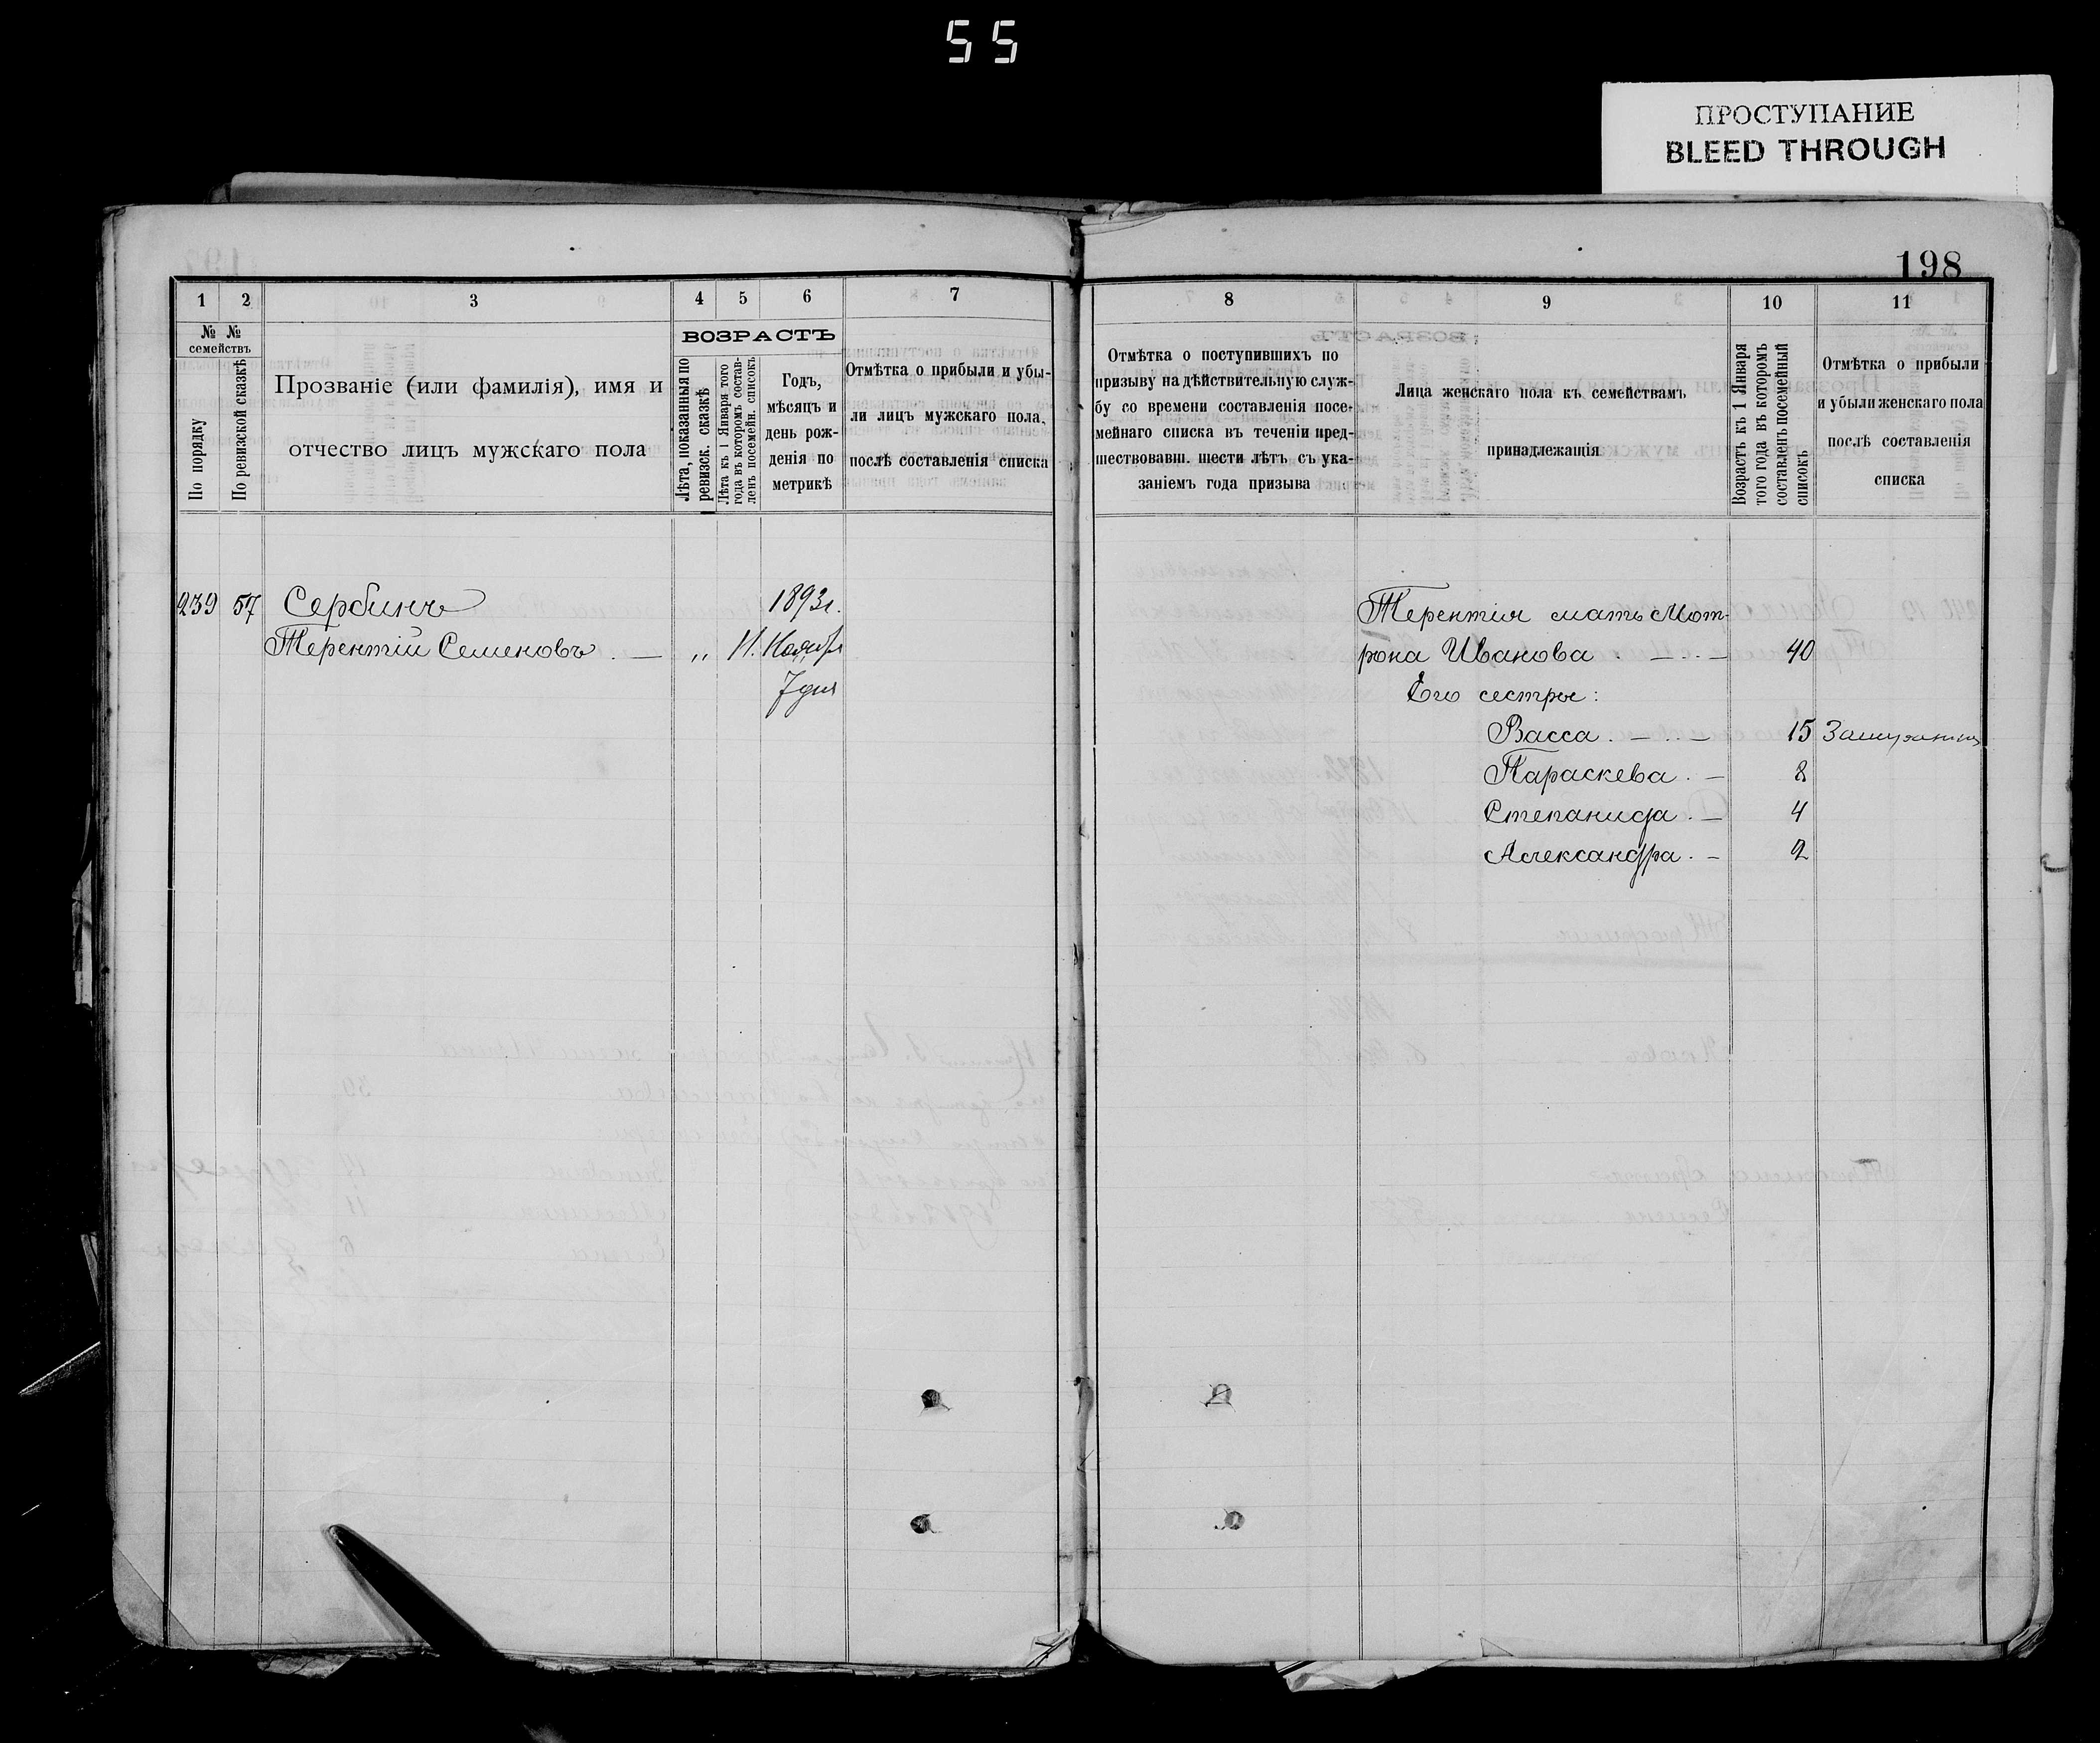 55
ПРОСТУПАНИЕ
BLEED THROUGH
198
1 2 3 4 5 6 7
№ № семействъ
По порядку
По ревизской сказкѣ
Прозваніе (или фамилія), имя и
отчество лицъ мужскаго пола
ВОЗРАСТЪ
Лѣта, показанныя по
ревизск. сказкѣ
Лѣта къ 1 Января того
года въ которомъ состав-
ленъ посемейн. списокъ
Годъ,
мѣсяцъ и
день рож-
денія по
метрикѣ
Отмѣтка о прибыли и убы-
ли лицъ мужскаго пола,
послѣ составленія списка
8 9 10 11
Отмѣтка о поступившихъ по
призыву на дѣйствительную служ-
бу со времени составленія посе-
мейнаго списка въ теченіи пред-
шествовавш. шести лѣтъ съ ука-
заніемъ года призыва
Лица женскаго пола къ семействамъ
принадлежащія
Возрастъ къ 1 Января
того года въ которомъ
составленъ посемейный
списокъ
Отмѣтка о прибыли
и убыли женскаго пола
послѣ составленія
списка
239 57 Сербинъ 1893г.
Терентій Семеновъ . — „ 11. Ноября
7 дня
Терентія мать Мот-
рона Иванова . — . — 40
Его сестры:
Васса . — . — 15 Замужемъ
Параскева . — 8
Степанида . — 4
Александра . — 2